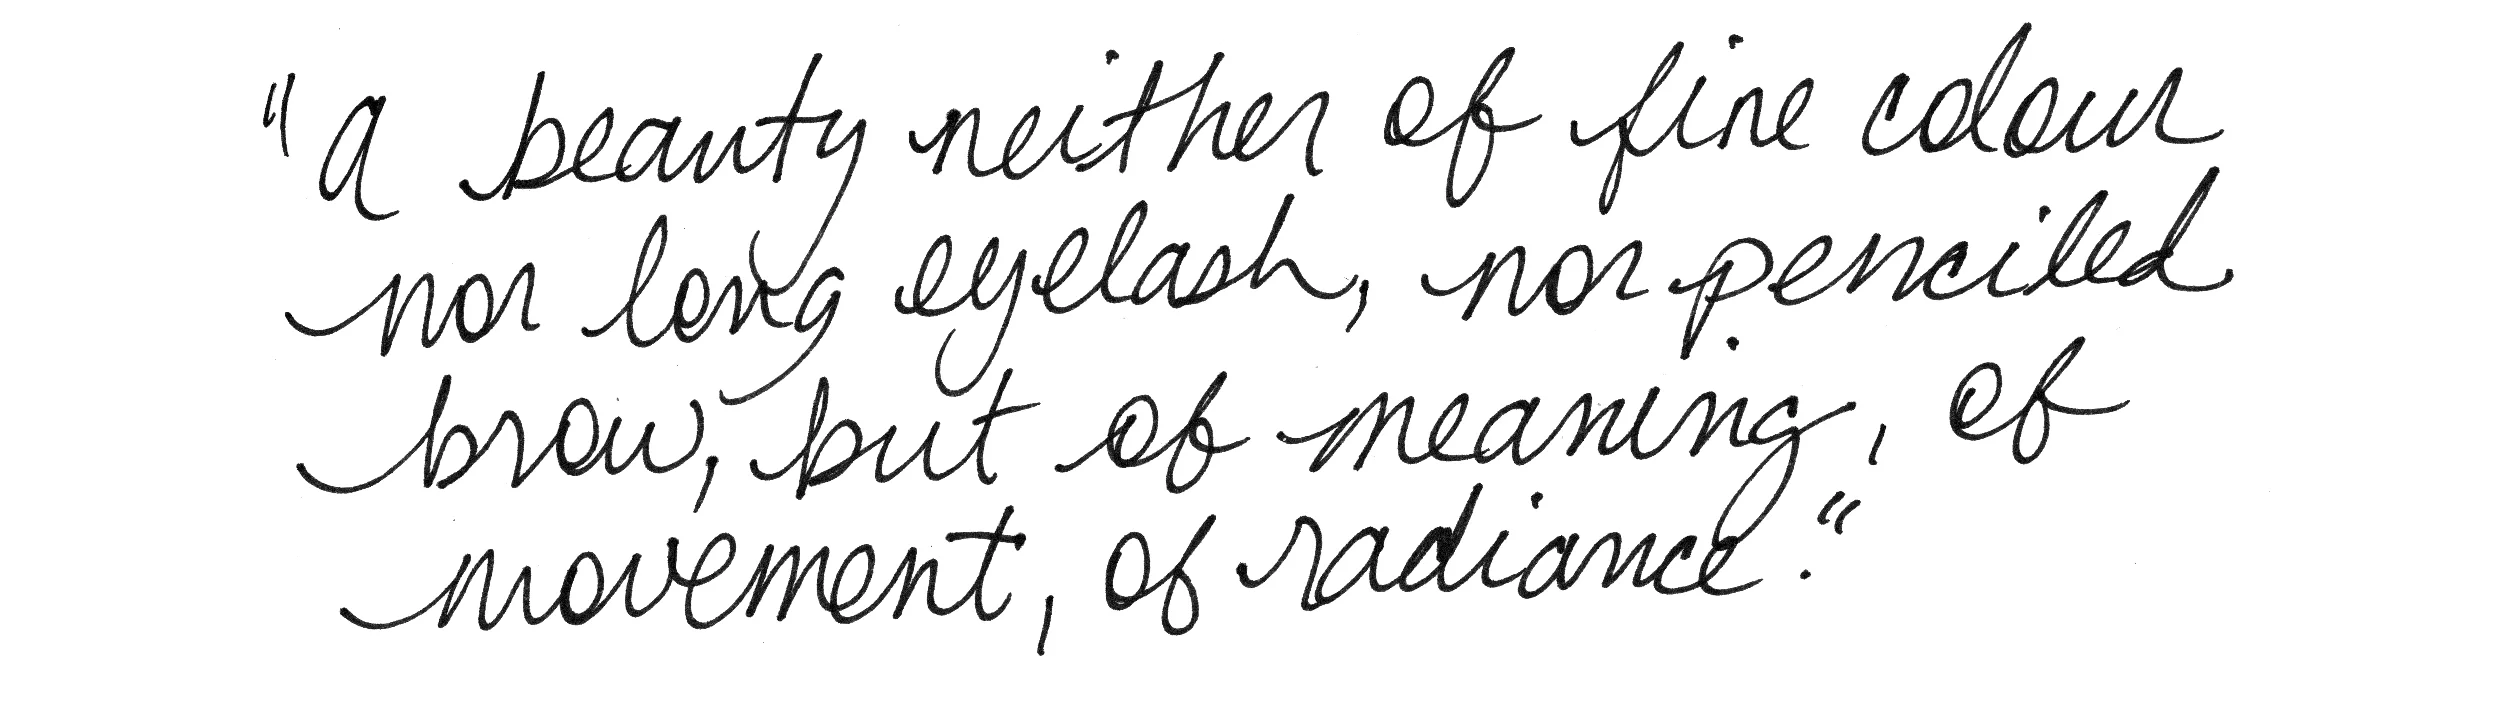 "A beauty neither of fine colour
nor long eyelash, nor penciled
brow, but of meaning, of
movement, of radiance."